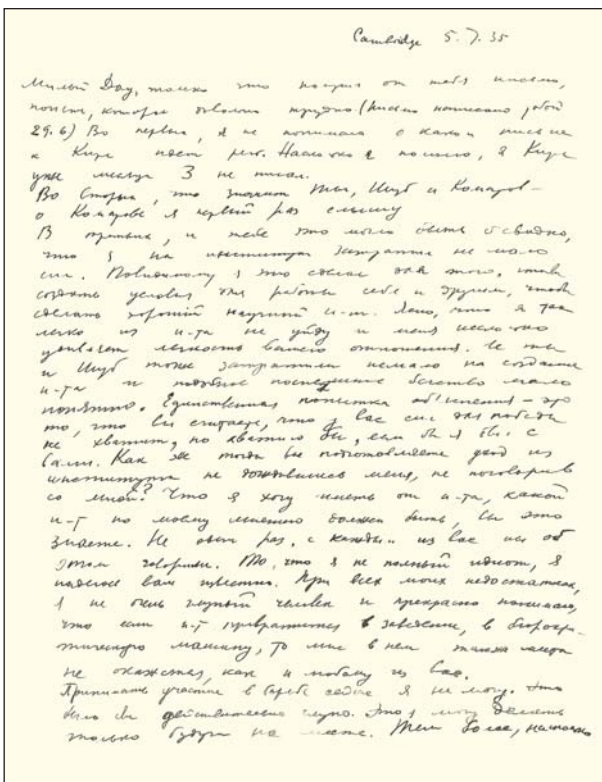 Cambridge 5.7.35
Милый Дау, только что получил от тебя письмо,
понять, которое довольно трудно (письмо написано тобой
29.6) Во первых, я не понимаю о каком письме
к Кире идет речь. Насколько я помню, я Кире
уже месяца 3 не писал.
Во вторых, что значит ты, Шуб и Комаров –
о Комарове я первый раз слышу
В третьих, и тебе это могло быть очевидно,
что я на институт затратил не мало
сил. Повидимому я это сделал для того, чтобы
создать условия для работы себе и другим, чтобы
сделать хороший научный и-т. Ясно, что я так
легко из и-та не уйду и меня несколько
удивляет легкость вашего отношения. И ты
и Шуб тоже затратили немало на создание
и-та и подобное поспешное бегство мало
понятно. Единственная попытка объяснения – это
то, что вы считаете, что у вас сил для победы
не хватит, но хватило бы, если бы я был с
вами. Как же тогда вы подготовляете уход из
института не дождавшись меня, не поговорив
со мной? Что я хочу иметь от и-та, какой
и-т по моему мнению должен быть, вы это
знаете. Не один раз, с каждым из вас мы об
этом говорили. То, что я не полный идиот, я
надеюсь вам известно. При всех моих недостатках,
я не очень глупый человек и прекрасно понимаю,
что если и-т превратится в заведение, в бюрокра-
тическую машину, то мне в нем также места
не окажется, как и любому из вас.
Принимать участие в борьбе сейчас я не могу. Это
было бы действительно глупо. Это я могу делать
только будучи на месте. Тем более, насколько